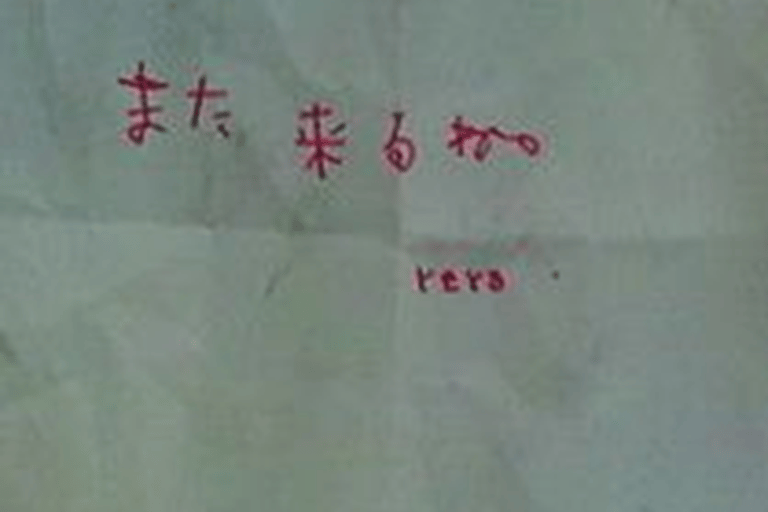 また 来るね。
rero